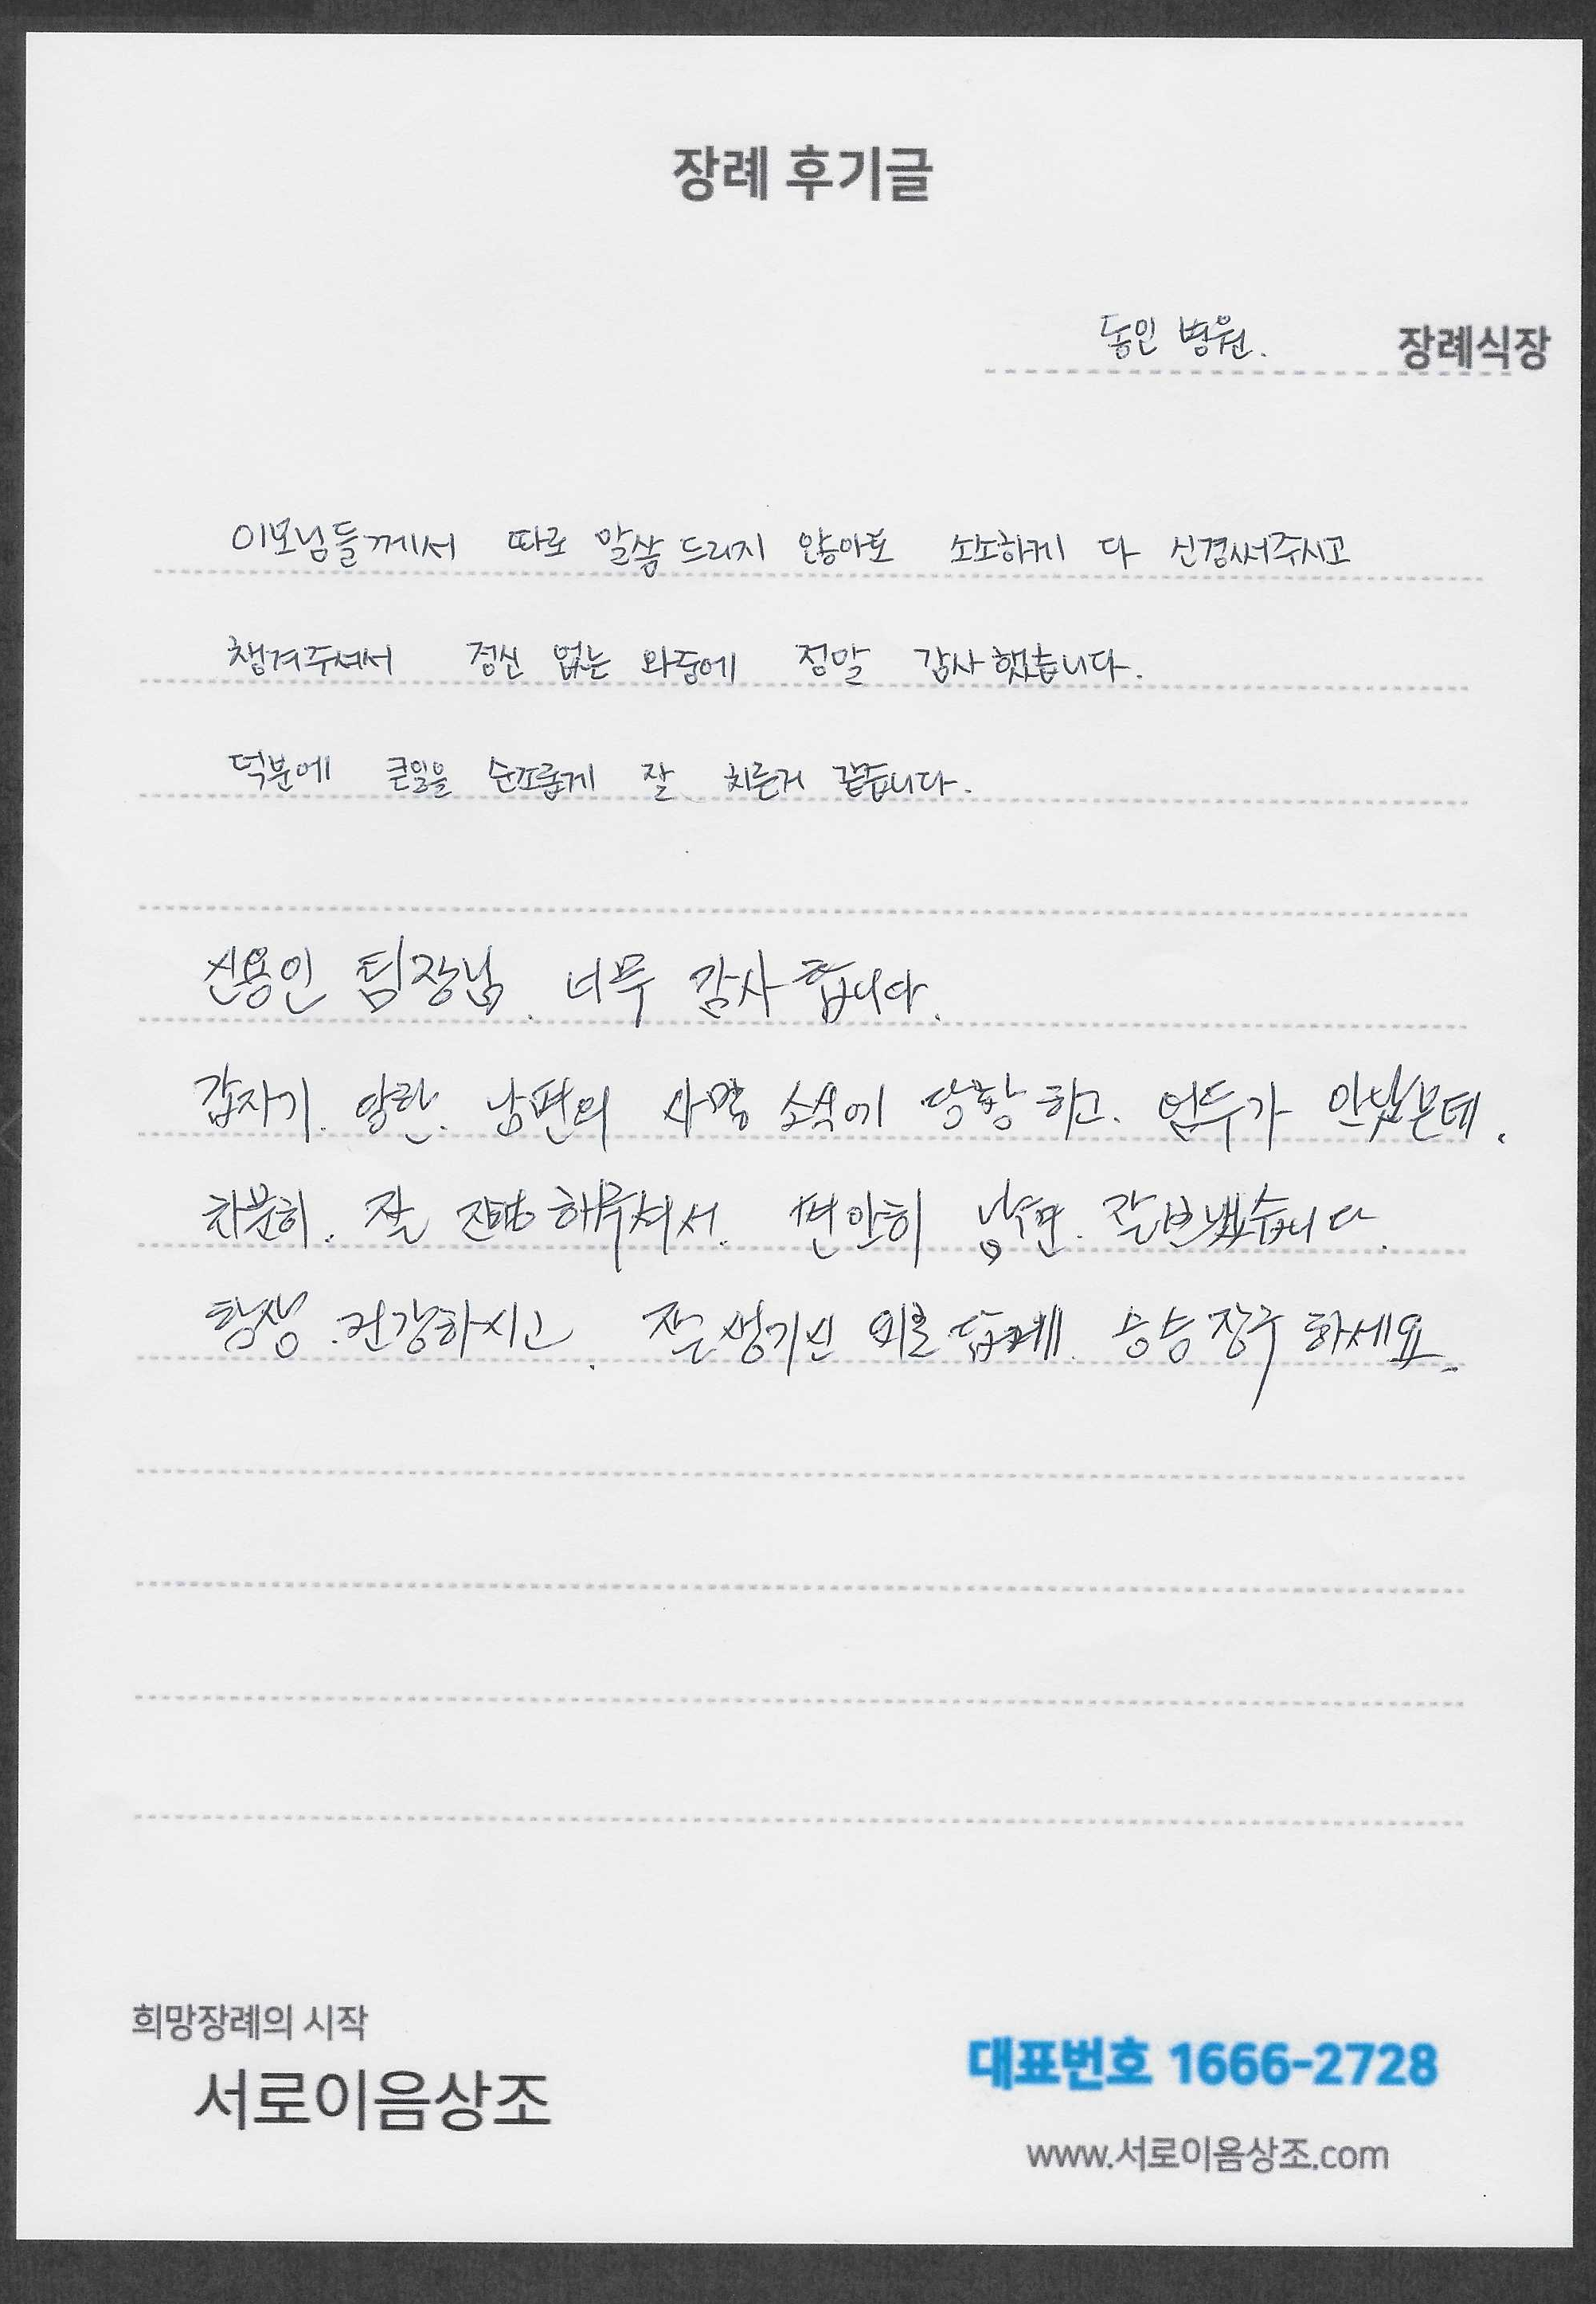 장례 후기글
동인 병원. 장례식장
이모님들께서 따로 말씀 드리지 않아도 소소하게 다 신경써주시고
챙겨주셔서 정신 없는 와중에 정말 감사했습니다.
덕분에 큰일을 순조롭게 잘 치른거 같습니다.
신용인 팀장님. 너무 감사합니다.
갑자기. 당한. 남편의 사망 소식에 당황하고. 엄두가 안났는데.
차분히. 잘 진행해주셔서. 편안히 남편. 잘보냈습니다.
항상 건강하시고. 잘생기신 외모 답게. 승승장구 하세요.
희망장례의 시작
서로이음상조
대표번호 1666-2728
www.서로이음상조.com